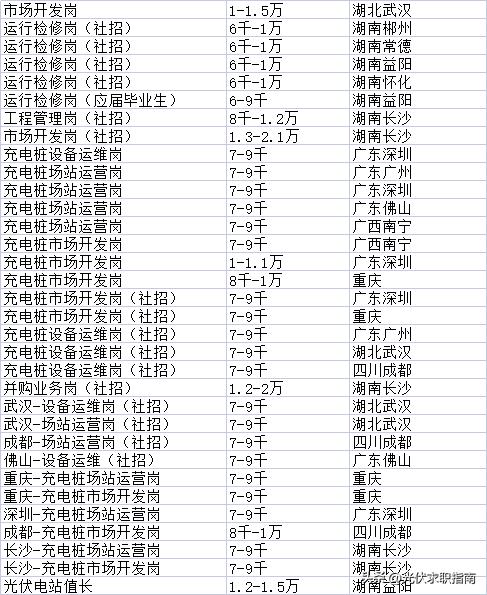 市场开发岗 1-1.5万 湖北武汉
运行检修岗（社招） 6千-1万 湖南郴州
运行检修岗（社招） 6千-1万 湖南常德
运行检修岗（社招） 6千-1万 湖南益阳
运行检修岗（社招） 6千-1万 湖南怀化
运行检修岗（应届毕业生） 6-9千 湖南益阳
工程管理岗（社招） 8千-1.2万 湖南长沙
市场开发岗（社招） 1.3-2.1万 湖南长沙
充电桩设备运维岗 7-9千 广东深圳
充电桩场站运营岗 7-9千 广东广州
充电桩场站运营岗 7-9千 广东深圳
充电桩场站运营岗 7-9千 广东佛山
充电桩场站运营岗 7-9千 广西南宁
充电桩市场开发岗 7-9千 广西南宁
充电桩市场开发岗 1-1.1万 广东深圳
充电桩市场开发岗 8千-1万 重庆
充电桩市场开发岗（社招） 7-9千 广东深圳
充电桩市场开发岗（社招） 7-9千 重庆
充电桩设备运维岗（社招） 7-9千 广东广州
充电桩设备运维岗（社招） 7-9千 湖北武汉
充电桩设备运维岗（社招） 7-9千 四川成都
并购业务岗（社招） 1.2-2万 湖南长沙
武汉-设备运维岗（社招） 7-9千 湖北武汉
武汉-场站运营岗（社招） 7-9千 湖北武汉
成都-场站运营岗（社招） 7-9千 四川成都
佛山-设备运维（社招） 7-9千 广东佛山
重庆-充电桩场站运营岗 7-9千 重庆
重庆-充电桩市场开发岗 7-9千 重庆
深圳-充电桩场站运营岗 7-9千 广东深圳
成都-充电桩市场开发岗 8千-1万 四川成都
长沙-充电桩场站运营岗 7-9千 湖南长沙
长沙-充电桩市场开发岗 7-9千 湖南长沙
光伏电站值长 1.2-1.5万 湖南益阳
头条@光伏求职指南